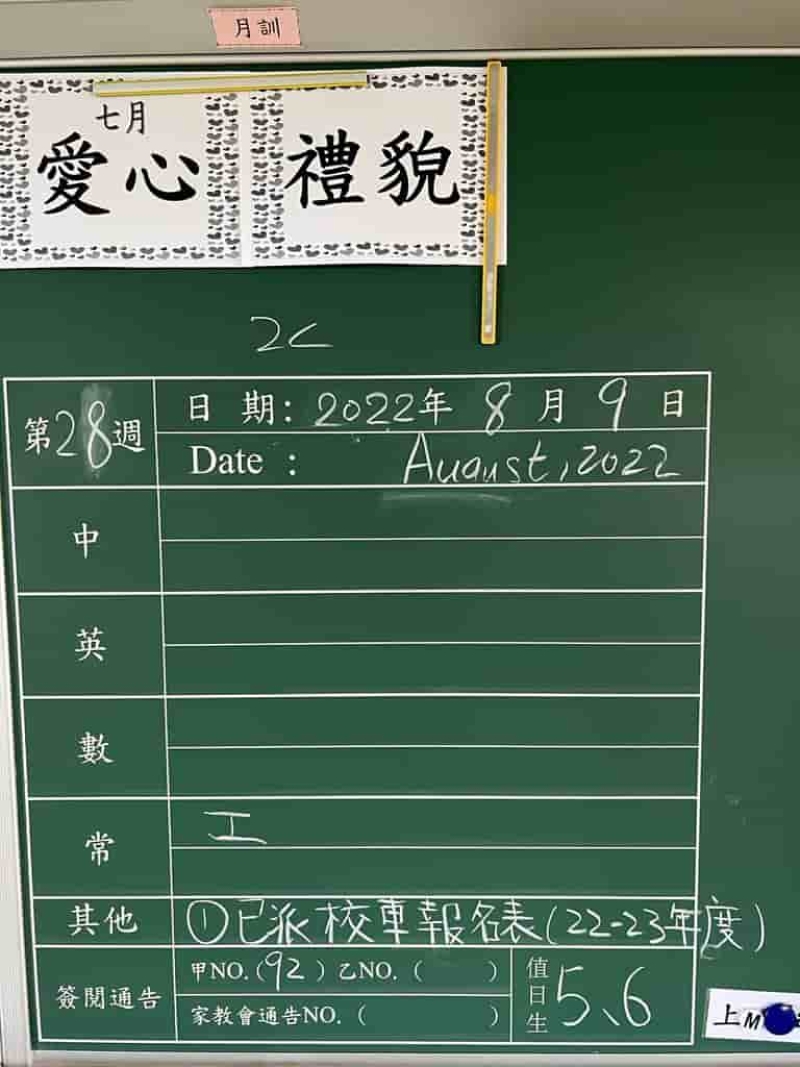 月訓
七月
愛心 禮貌
2C
第28週
日 期: 2022年 8 月 9 日
Date : August, 2022
中
英
數
常 工
其他 ①已派校車報名表(22-23年度)
簽閱通告
甲NO.(92) 乙NO.( )
家教會通告NO.( )
值日生 5、6
上M